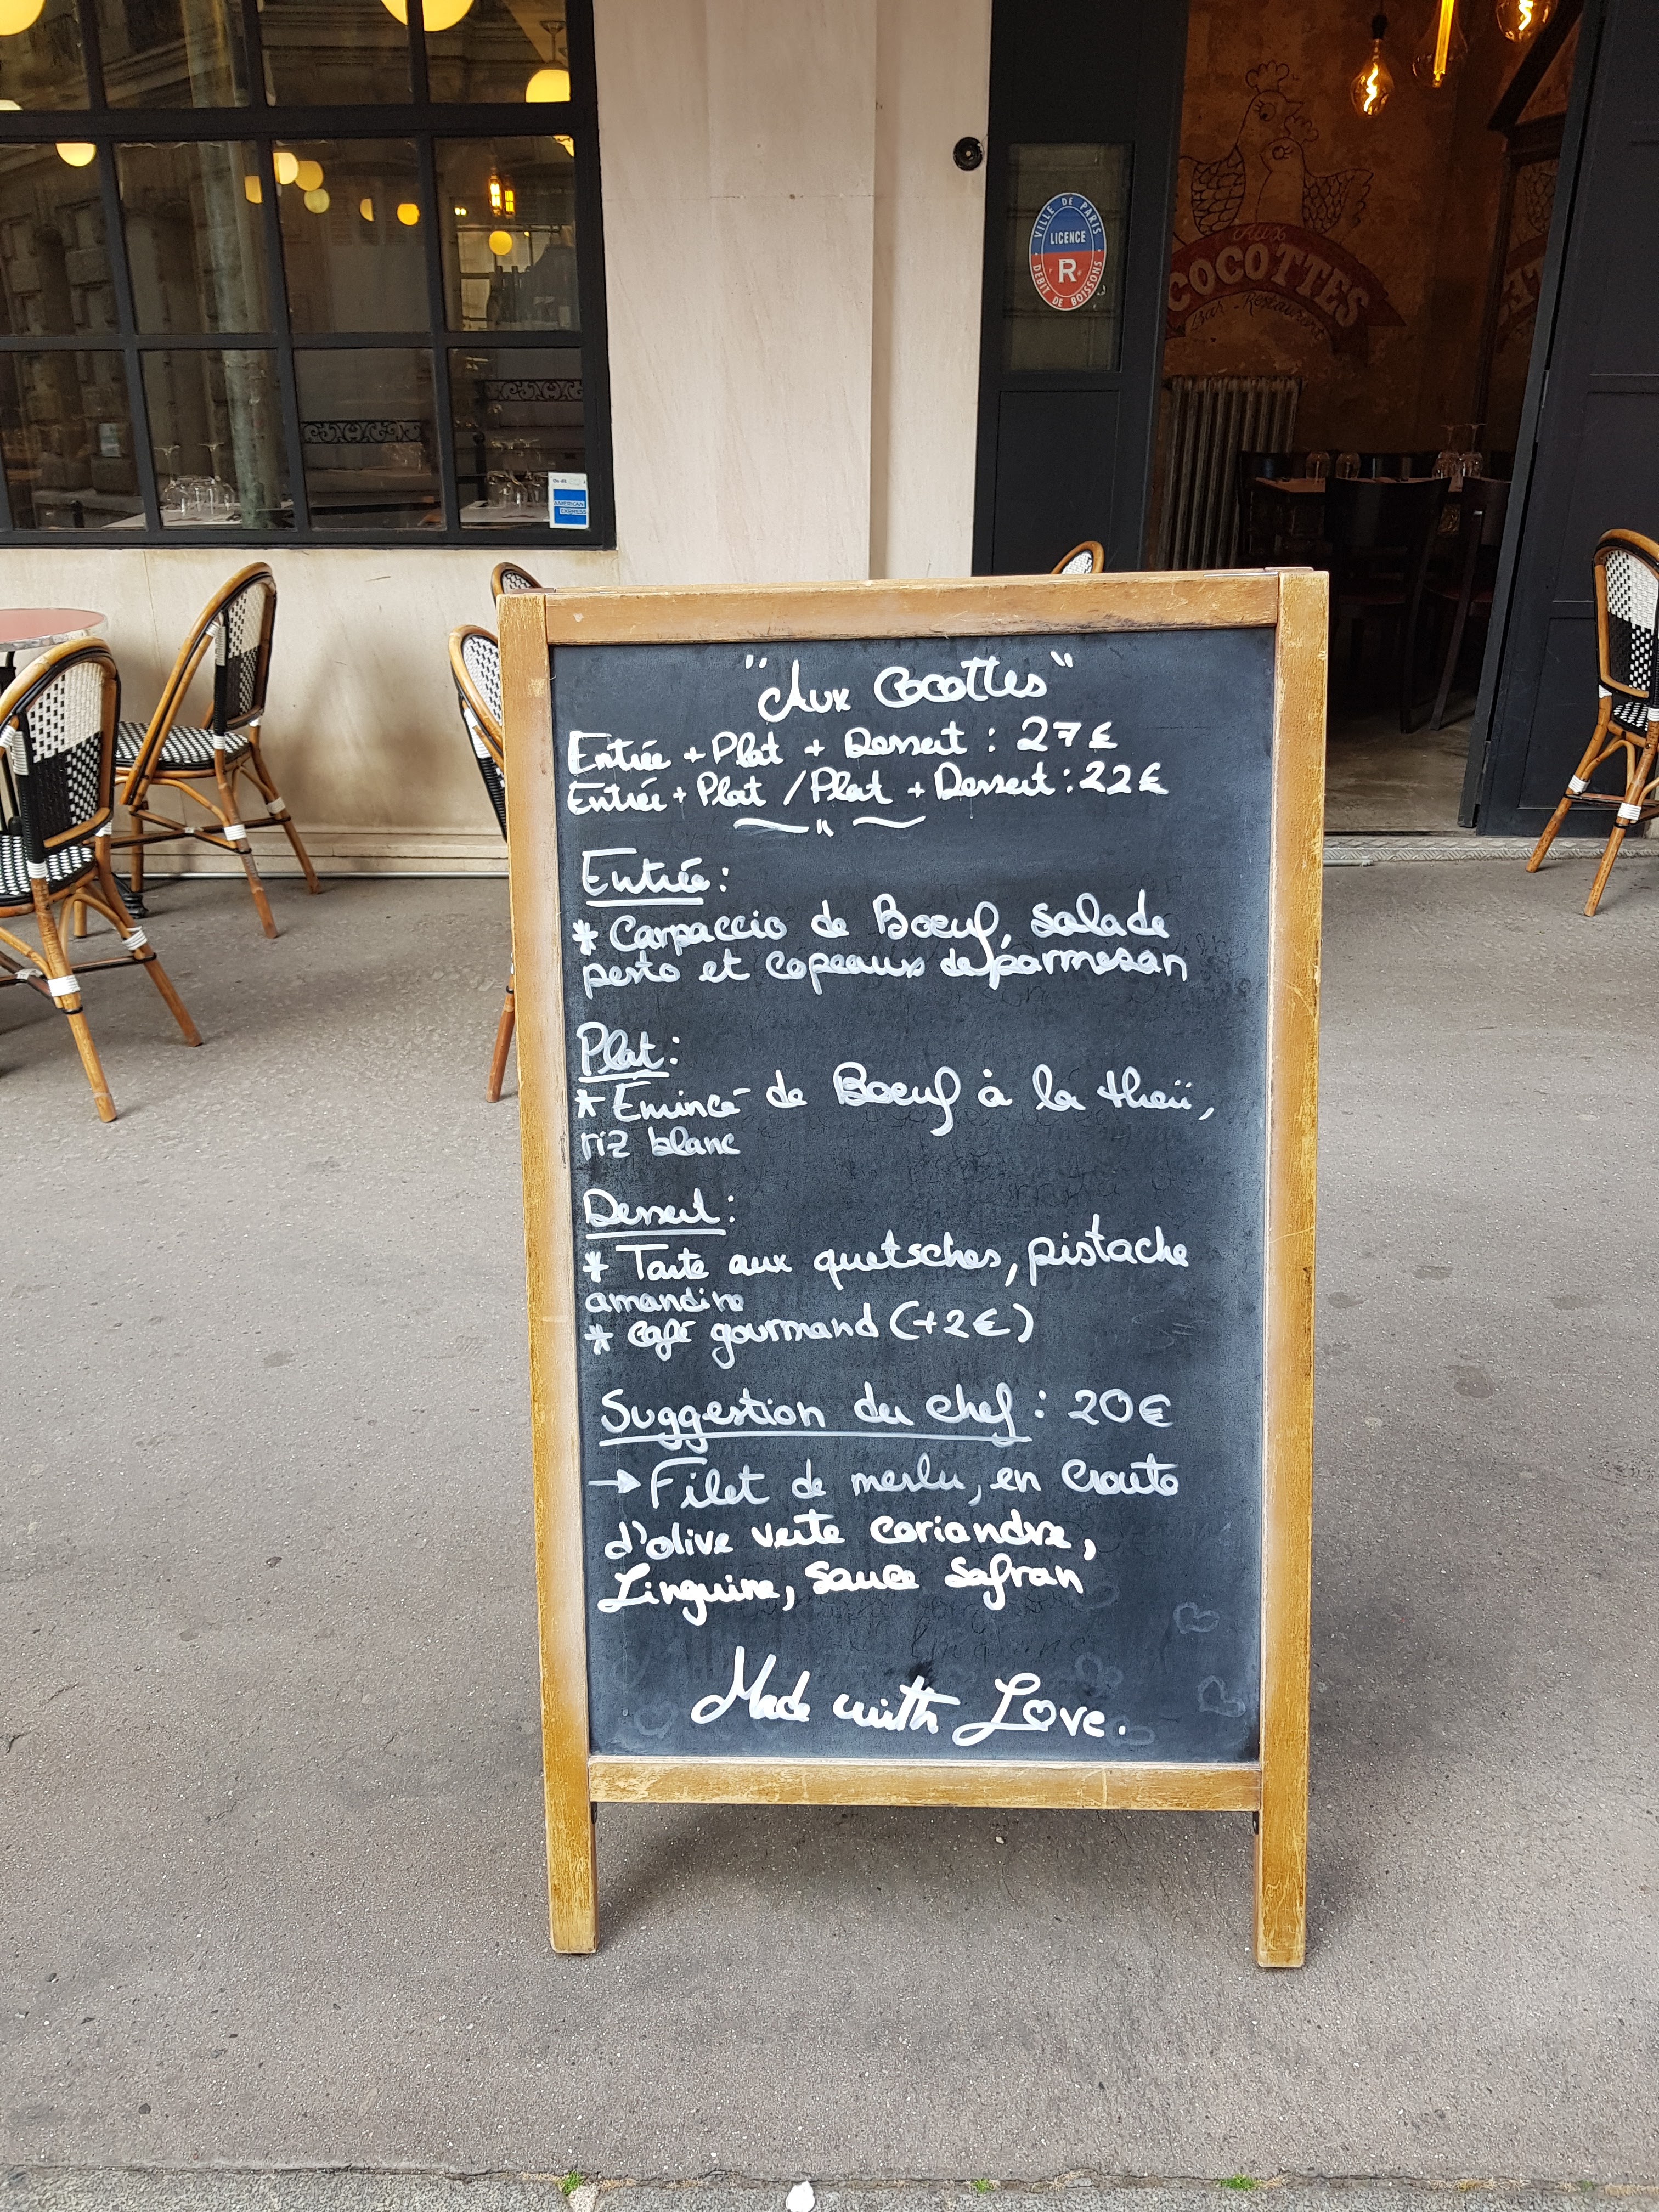 VILLE DE PARIS
LICENCE
R
DEBIT DE BOISSONS
Aux
COCOTTES
Bar - Restaurant
AMERICAN
EXPRESS
"Aux Cocottes"
Entrée + Plat + Dessert : 27€
Entrée + Plat / Plat + Dessert : 22€
Entrée :
* Carpaccio de Boeuf, salade
pesto et copeaux de parmesan
Plat :
* Emincé de Boeuf à la thaï,
riz blanc
Dessert :
* Tarte aux quetsches, pistache
amandine
* Café gourmand (+2€)
Suggestion du chef : 20€
→ Filet de merlu, en croute
d'olive verte coriandre,
Linguine, sauce safran
Made with Love.